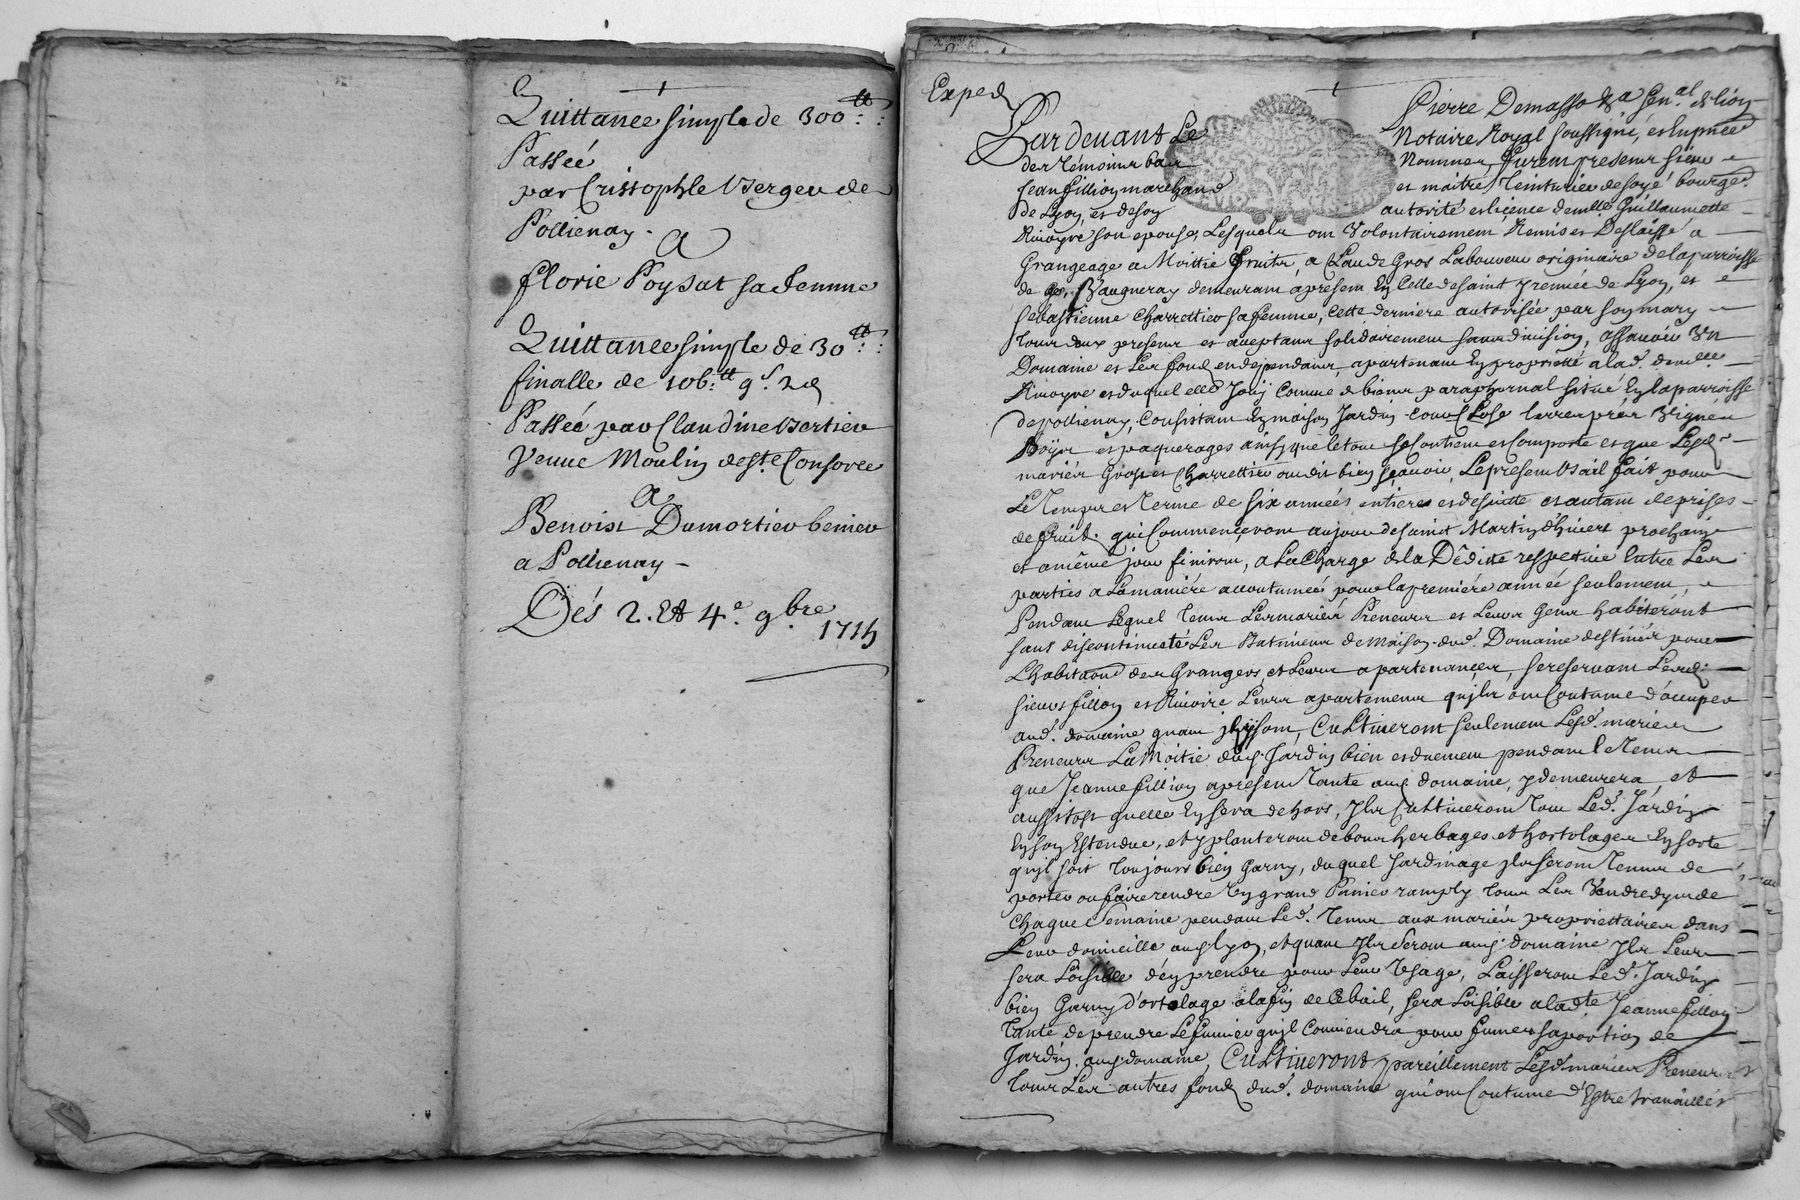 Quittance simple de 300:tt:
Passée
par Cristophle Verger de
Pollienay.
A
florie Poysat sa femme
Quittance simple de 30:tt:
finalle de 106:tt 9s 2d
Passée par Claudine Bertier
Veuve Moulin de ste Consorce
A
Benoist Dumortier benier
a Pollienay
Dés 2. Et 4e 9bre
1715
Exped
Pardevant Le Pierre Demasso
Notaire Royal soussigné, et en pnce
des témoins bas Nommes, furent presens sieur
Jean fillion marchand et maitre Teinturier de soye bourgs
de Lyon, et de son autorité et licence demlle Guillaumette
Rivoyre son epouse, Lesquels ont Volontairement Remis et Deslaissé a
Grangeage a Moittié fruits, a Claude Gros Laboureur originaire de la parroisse
de Vaugneray demeurant apresent En Celle de saint yrennée de Lyon, et
sebastienne Charrettier sa femme, Cette derniere autorisée par son mary
tous deux presens et aceptans solidairement sans division, assavoir Un
Domaine et Les fonds en dependans, apartenant En proprieté a lad. demlle
Rivoyre et duquel elle Jouy Comme de biens paraphernal situé En la parroisse
de pollienay, Consistant En maison Jardin Cour Close terres prés Vignes
Boys et paquerages ainsy que le tout se Contient et Comporte et que Lesd
mariés Gros et Charrettier ont dit bien sçavoir, Le present Bail fait pour
Le Temps et Terme de six années entieres et de suitte et autant de prises
de fruits qui Commenceront au jour de saint Martin d'hivert prochain
et a même jour finiront, a La Charge de la Dédite respective Entre Les
parties a La maniére accoutumée pour la premiére année seulement,
Pendant Lequel Temps Les mariés Preneurs et Leurs Gens habiteront
sans discontinuité Les Batimens de maison dud. Domaine destinés pour
L'habitaon des Grangers et Leurs apartenances, se reservant Lesd.
sieurs fillion et Rivoire Leurs apartemens qu'jls ont Coutume d'occuper
aud. domaine quant jls y sont, Cultiveront seulement Lesd. mariés
Preneurs La Moitié du Jardin bien et duement pendant le Temps
que Jeanne fillion apresent Tante aud domaine, y demeurera et
aussitost quelle En sera dehors, jls Cultiveront Tout Led. Jardin
En son Estendue, et y planteront de bons herbages et hortolages En sorte
qu'jl soit Toujours bien Garny, du quel Jardinage jls seront Tenus de
porter ou faire rendre Un grand Panier remply tous Les Vendredys de
chaque semaine pendant Led. Temps aux mariés propriettaires dans
Leur domicille aud Lyon, et quant jls seront aud. domaine jls Leurs
sera Loisible d'en prendre pour Leur Usage, Laisseront Led. Jardin
bien Garny d'ortolage a la fin de Ce bail, sera Loisible a ladte Jeanne fillion
tante de prendre Le fumier qu'jl Conviendra pour fumer sa portion de
Jardin aud. domaine, Cultiveront pareillement Lesd. mariés Preneurs
tous Les autres fonds dud. domaine qui ont Coutume d'Estre travaillés